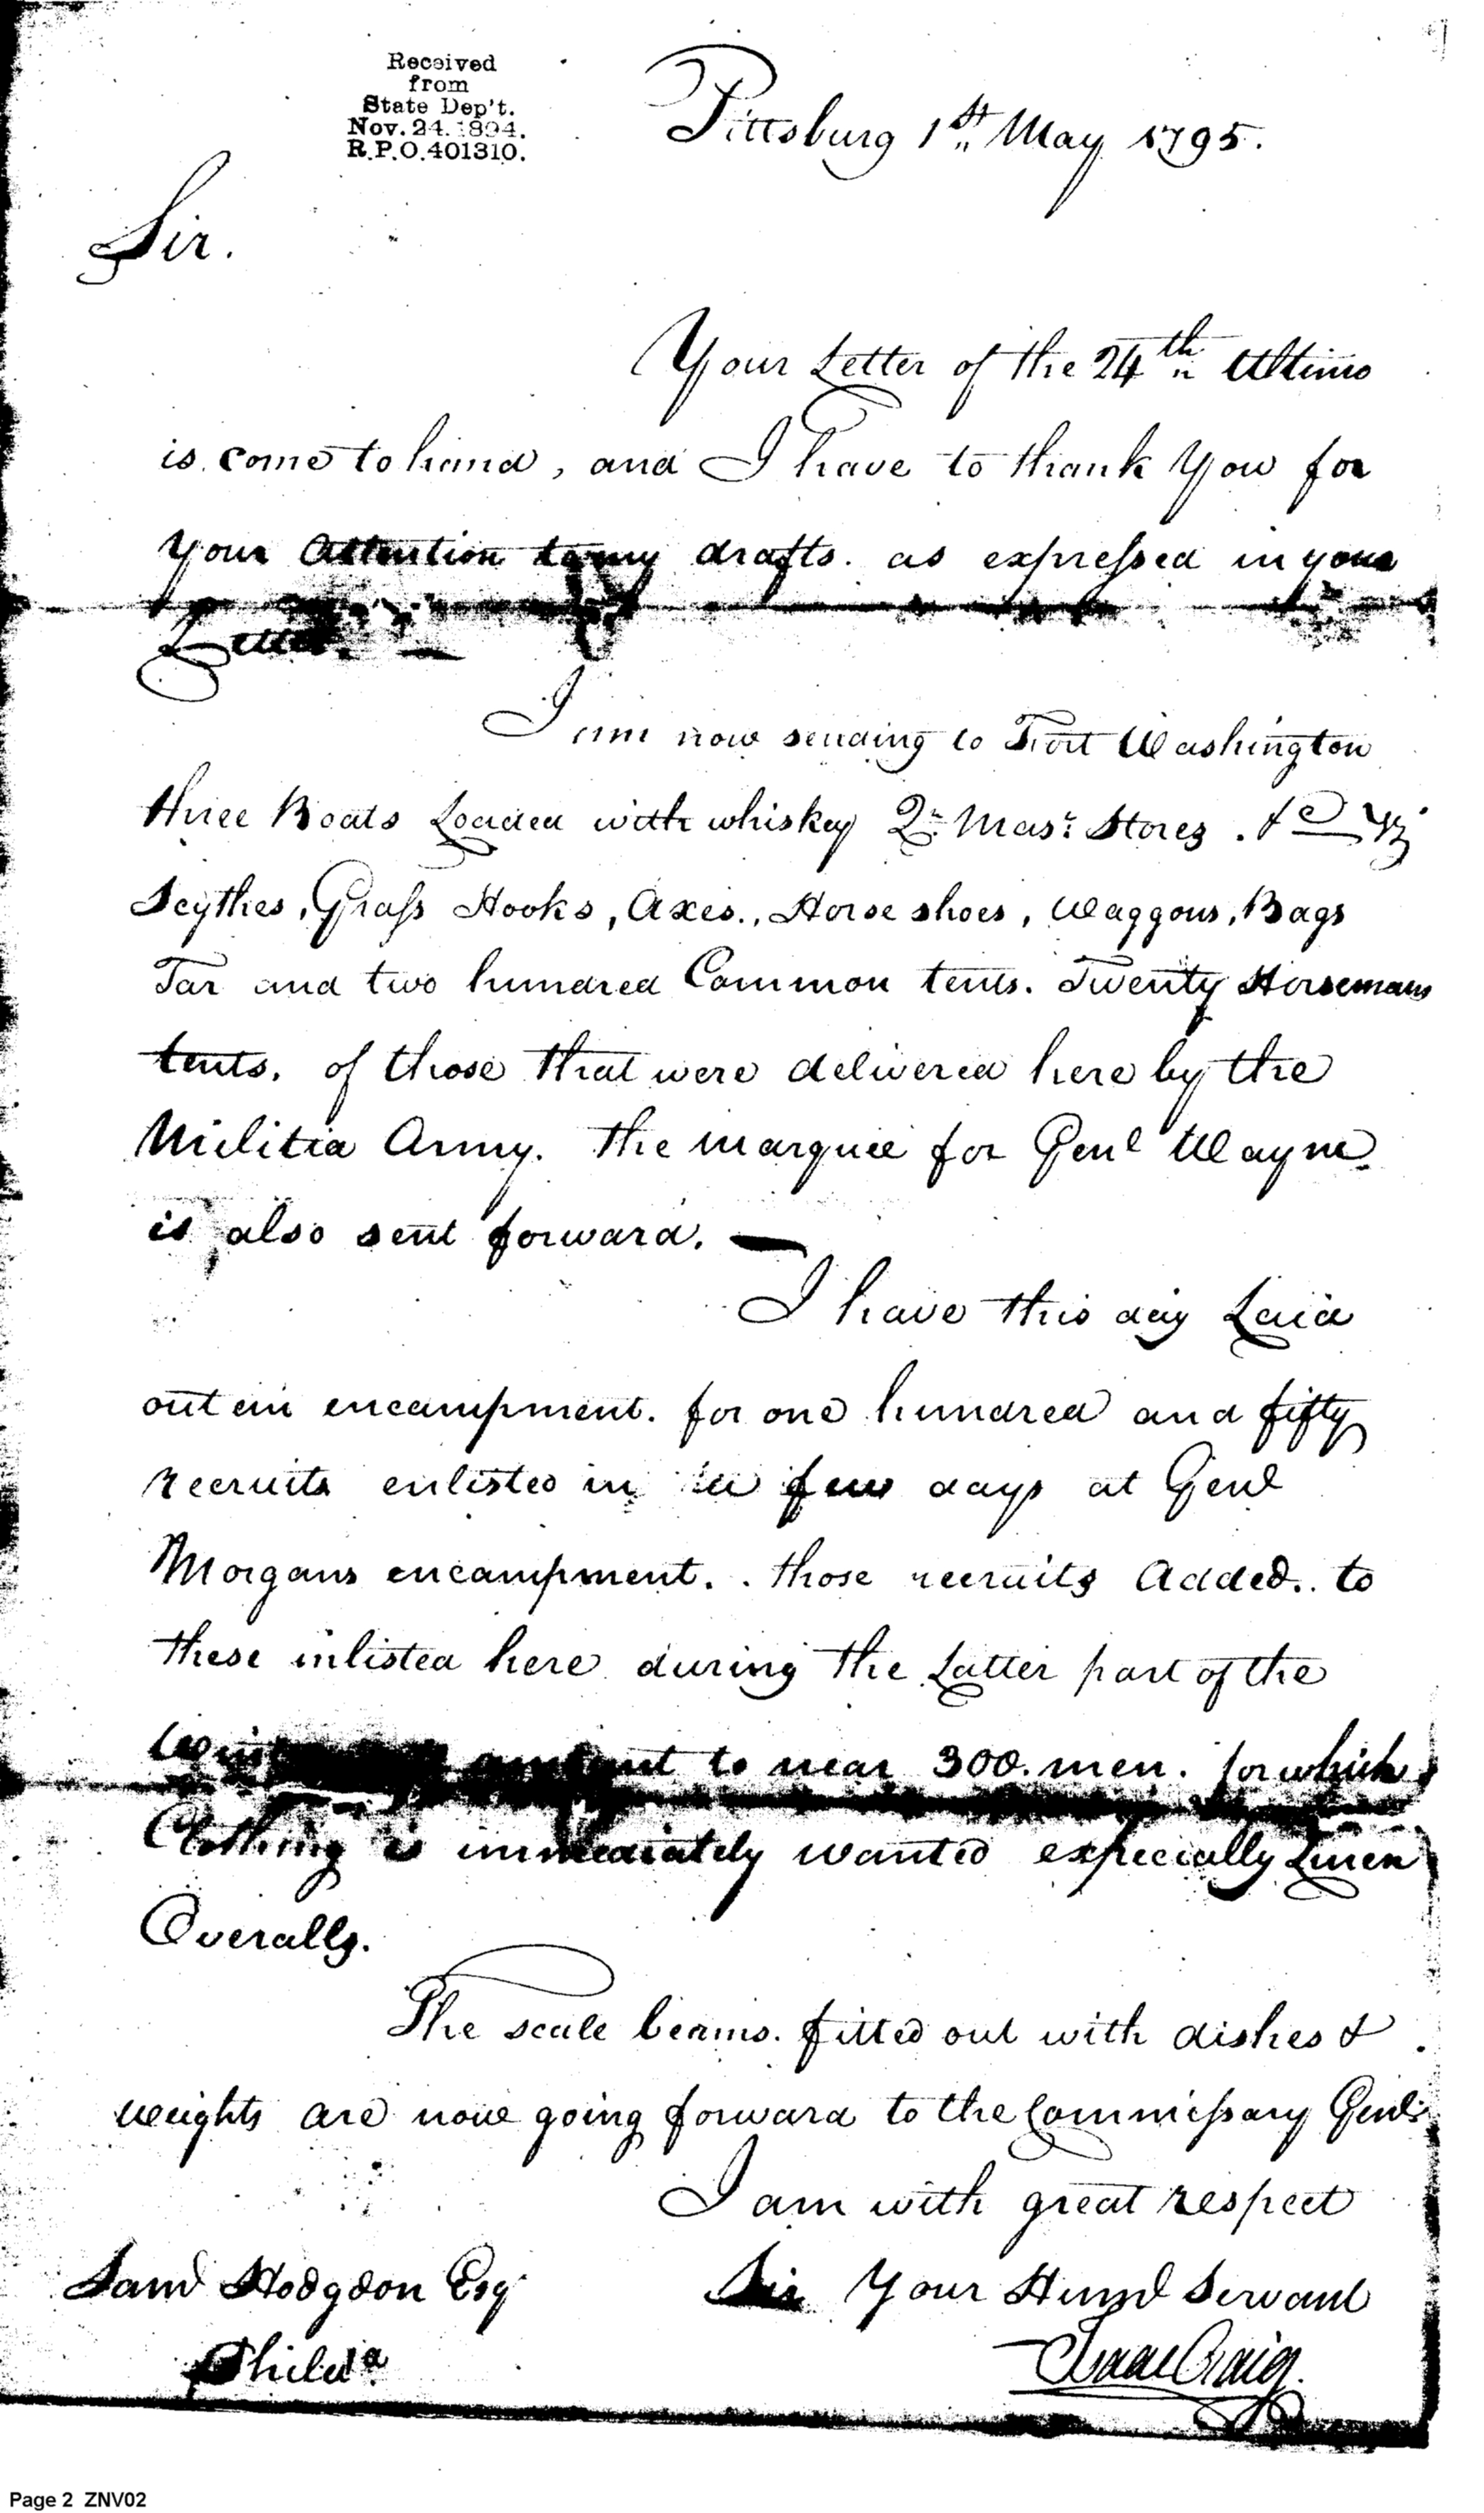 Received
from
State Dep't.
Nov. 24. 1894.
R.P.O. 401310.
Pittsburg 1st May 1795.
Sir.
Your Letter of the 24th Ultimo
is come to hand, and I have to thank You for
your Attention to my drafts. as expressed in your
Letter.
I am now sending to Fort Washington
three Boats Loaded with whiskey Qr. Masr. Stores. &c Viz
Scythes, Grass Hooks, Axes., Horse shoes, Waggons, Bags
Tar and two hundred Common tents. Twenty Horsemans
tents. of those that were delivered here by the
Militia Army. The marquee for Genl Wayne
is also sent forward. —
I have this day Laid
out an encampment. for one hundred and fifty
recruits enlisted in a few days at Genl
Morgans encampment.. those recruits Added.. to
these inlisted here during the Latter part of the
amount to near 300. men. for which
Clothing is immediately wanted especially Linen
Overalls.
The scale beams. fitted out with dishes &
weights are now going forward to the Commissary Genls.
I am with great respect
Saml Hodgdon Esqr
Sir Your Humbl Servant
Philada.
Isaac Craig.
Page 2 ZNV02